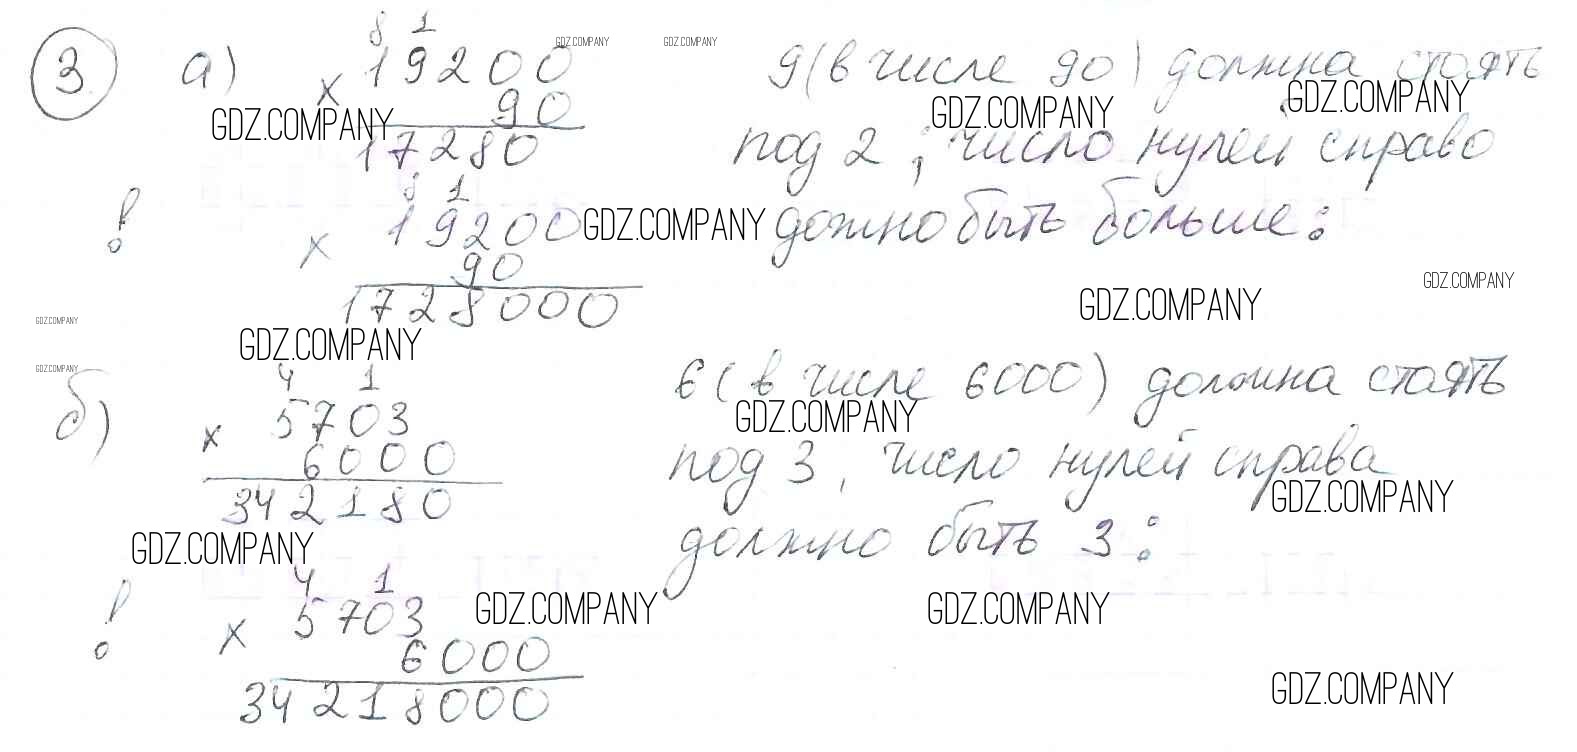 3 а) 8 1
× 19200 9 (в числе 90) должна стоять
90
17280 под 2 ; число нулей справо
! 8 1
× 19200 должно быть больше:
90
1728000
б) 4 1
× 5703 6 (в числе 6000) должна стоять
6000 под 3, число нулей справа
342180
должно быть 3:
! 4 1
× 5703
6000
34218000
GDZ.COMPANY GDZ.COMPANY
GDZ.COMPANY GDZ.COMPANY GDZ.COMPANY
GDZ.COMPANY
GDZ.COMPANY GDZ.COMPANY
GDZ.COMPANY GDZ.COMPANY
GDZ.COMPANY GDZ.COMPANY
GDZ.COMPANY
GDZ.COMPANY
GDZ.COMPANY GDZ.COMPANY
GDZ.COMPANY